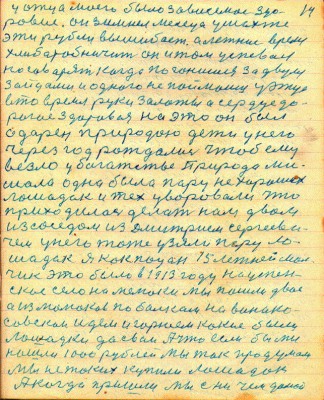 14
у отца моего было зависимое здо-
ровье. он зимние месеца ухажже
эти рубки вышибает, а летние время
хлибаробничит он итом успевал
но говарят когда погонишся за двумя
зайцами и одного не поймаеш у этуа
вто время руки залоты а сердуе до-
рогое здаровая на это он был
одарен природою дети у него
через год рождалис чтоб ему
везло у богатстве природа ме-
шала одна была пару нехароших
лошадак и тех уворовали это
приходилася делат нам двом
изсоседом из Дмитрием сергееви-
чем унего тоже узяли пару ло-
шадак я как поуан 15 летней мал-
чик это было в 1913 году на
ское село на меноки мы пошли двое
а из маноков по балкам на
совскои идем и горнем какие были
лошадки да свам а что если бы ми
нашли 1000 рублей мы так продумали
мы не таких купили лошадак
а когда пришли мы с ни чем дамой